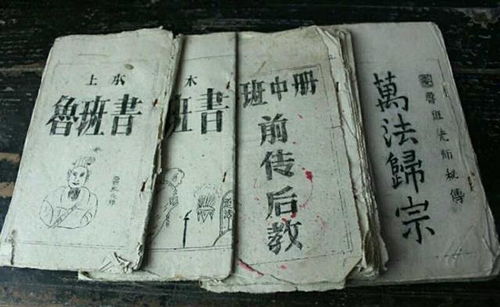 上本
魯班書
本
班书
班中册
前传后教
萬法歸宗
魯班先师秘傳